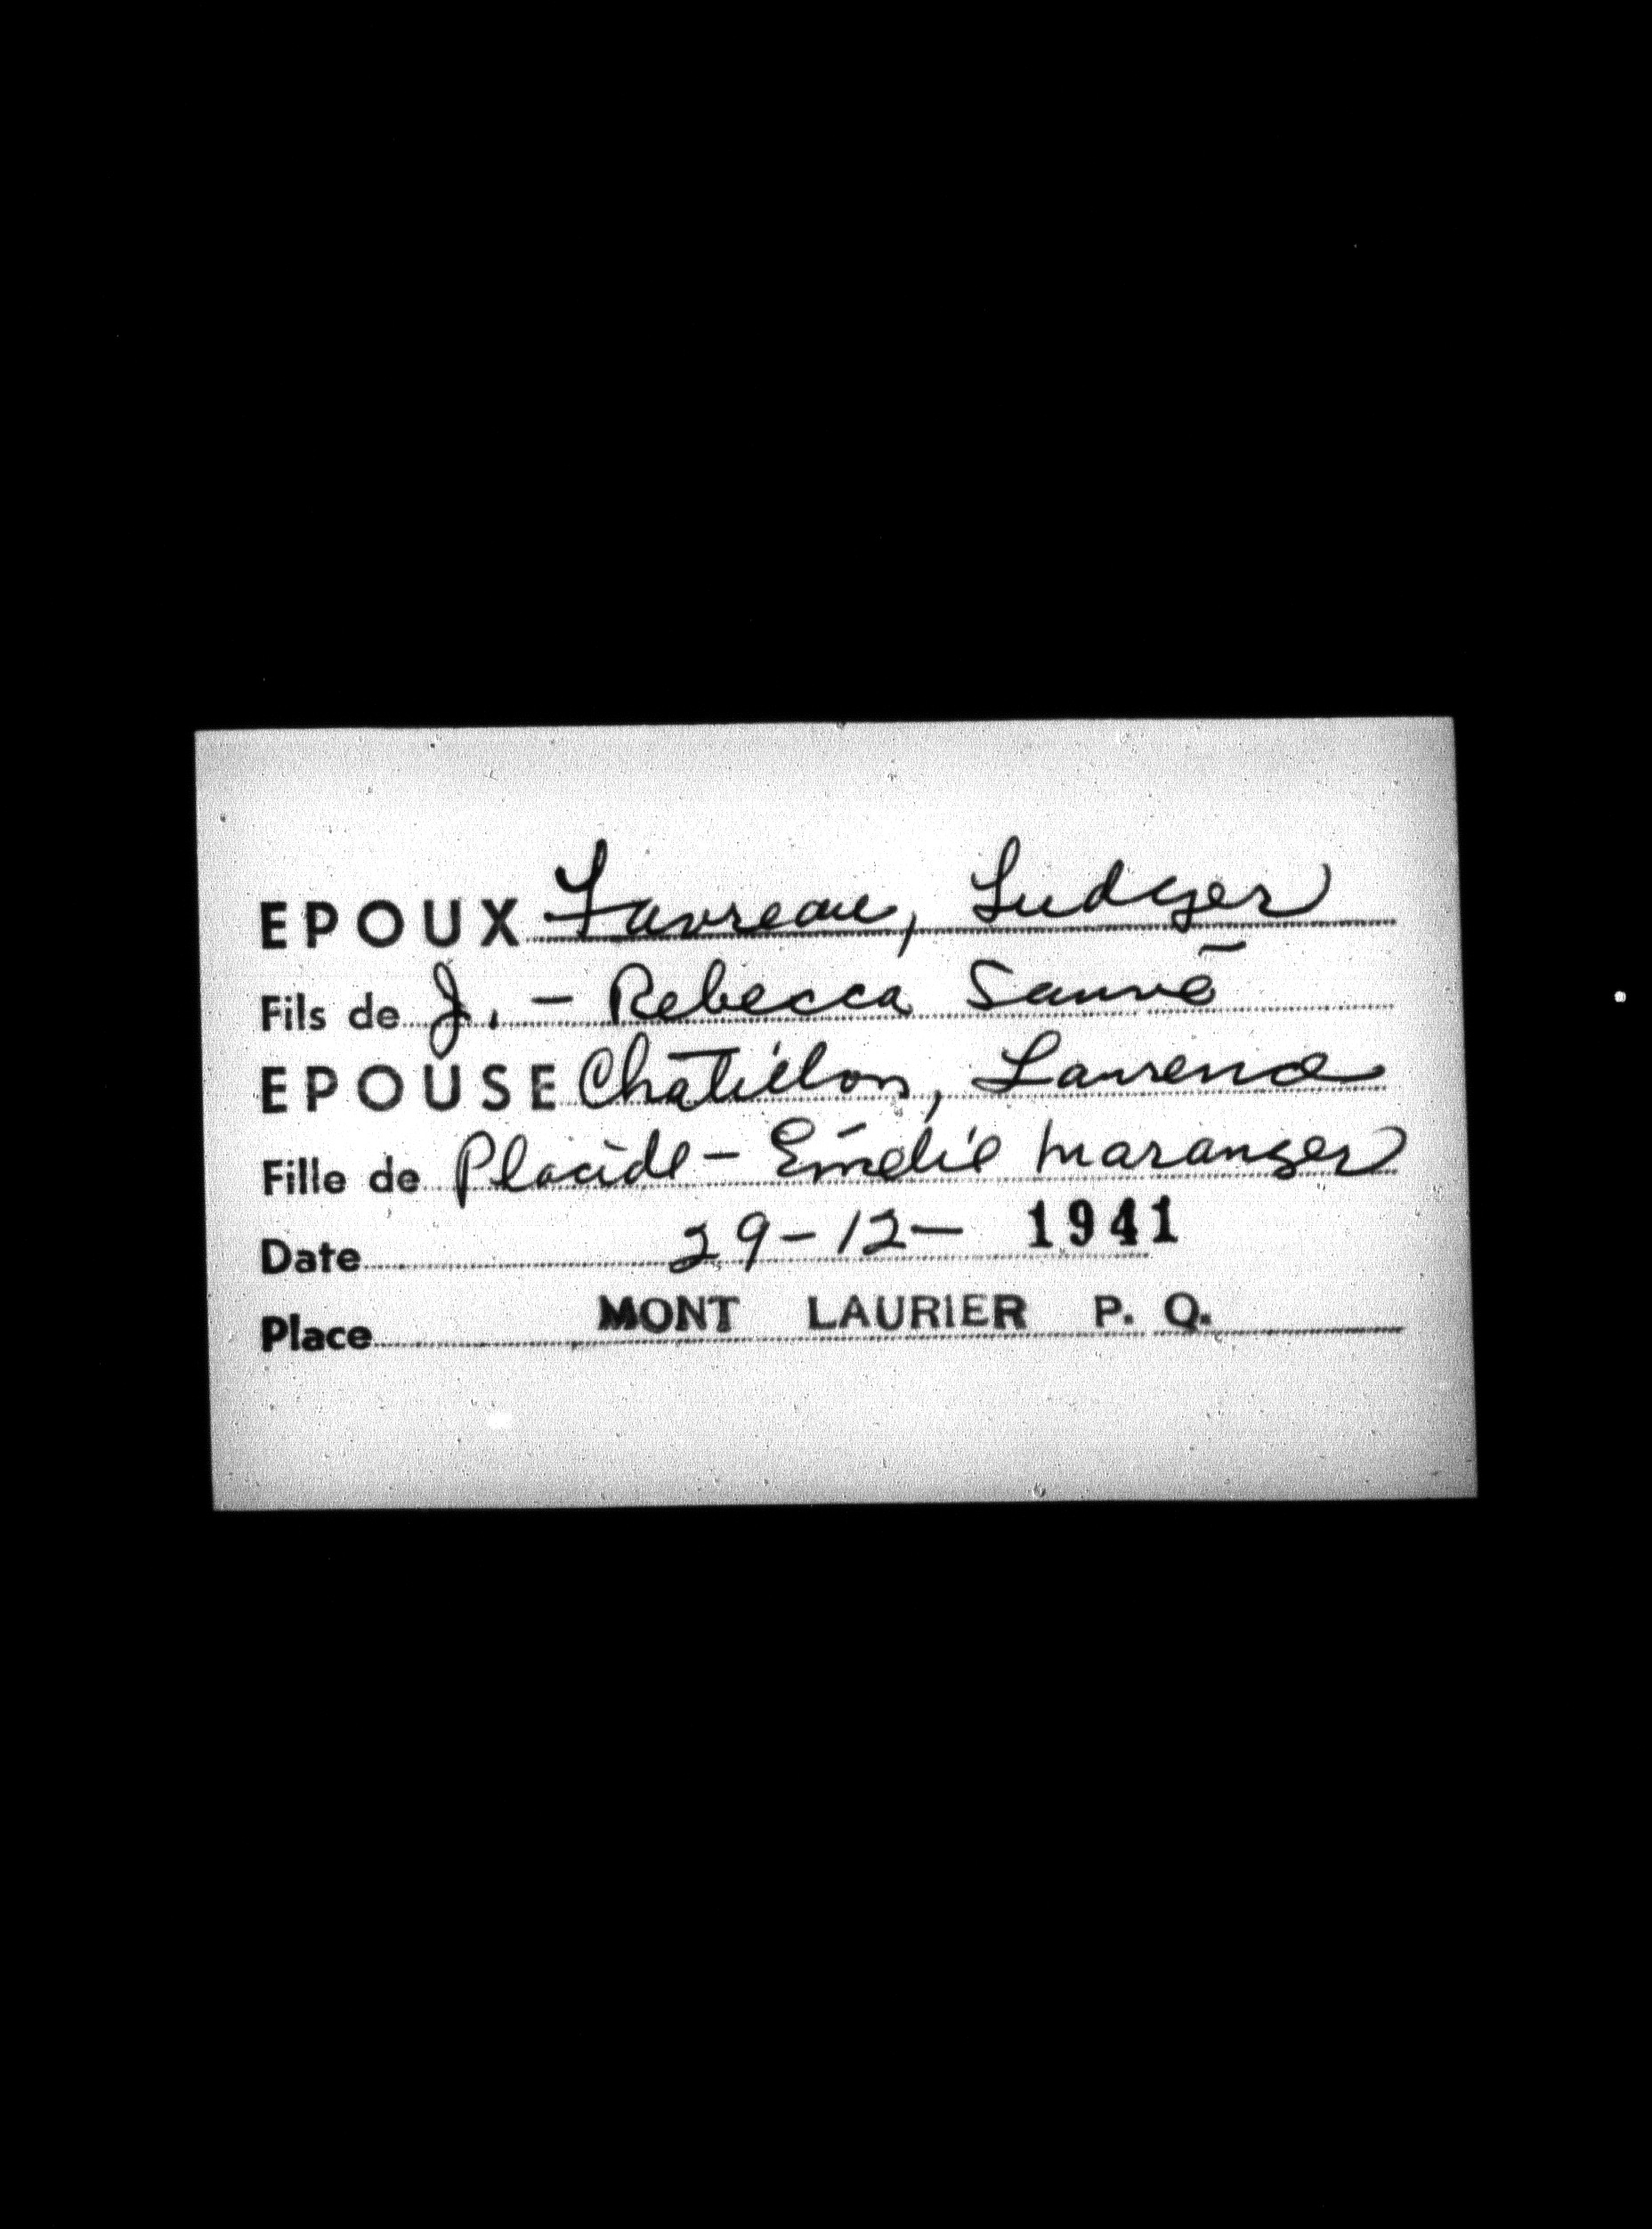 EPOUX Favreau, Ludger
Fils de J. - Rebecca Sauvé
EPOUSE Chatillon, Laurence
Fille de Placide - Emélie Maranger
Date 29-12- 1941
Place MONT LAURIER P. Q.